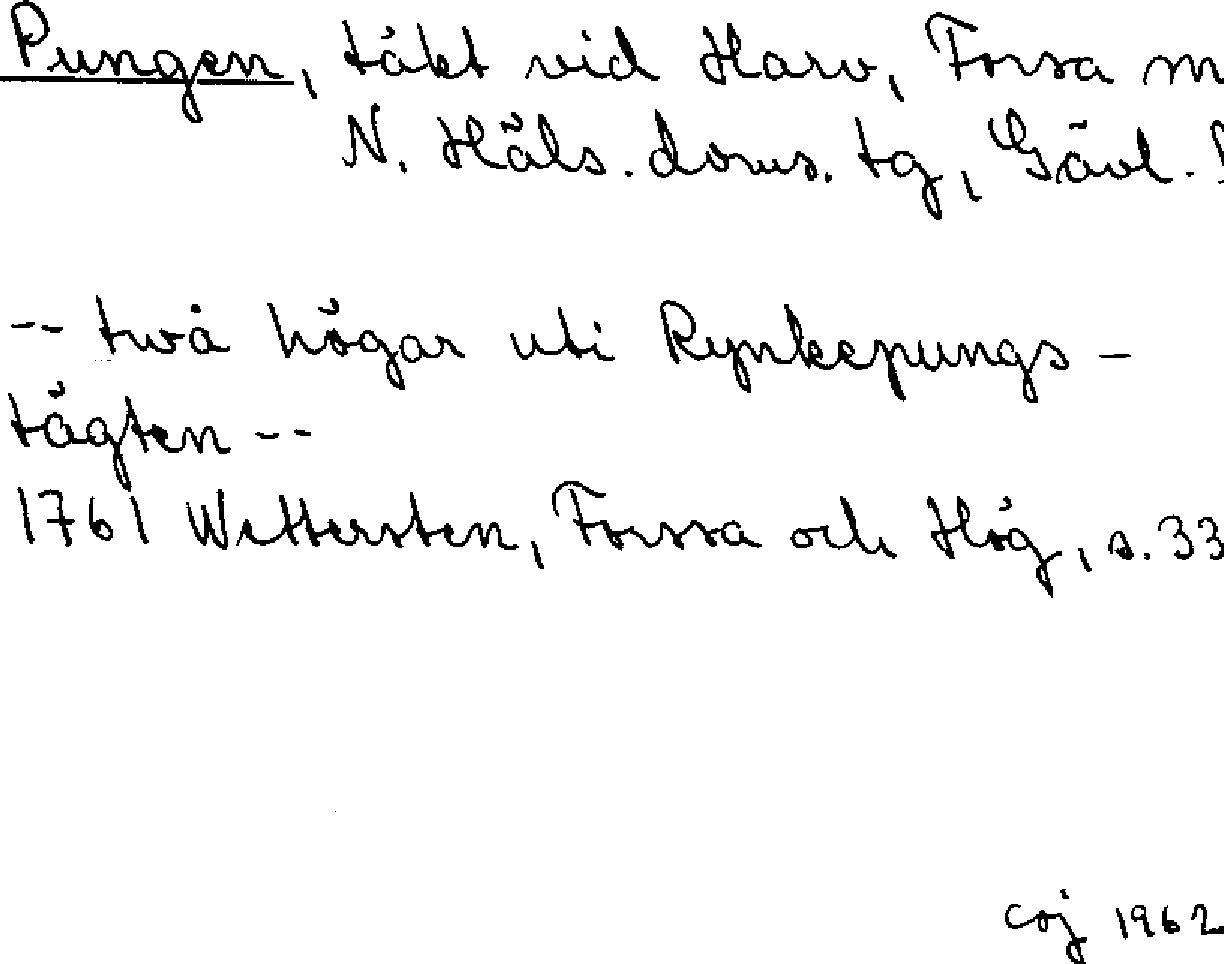 Pungen, täkt vid Harv, Forsa
N. Häls. doms. tg, Gävl.
-- twå högar uti Rynkepungs-
tägten --
1761 Wettersten, Forssa och Hög, s. 33
coj 1962